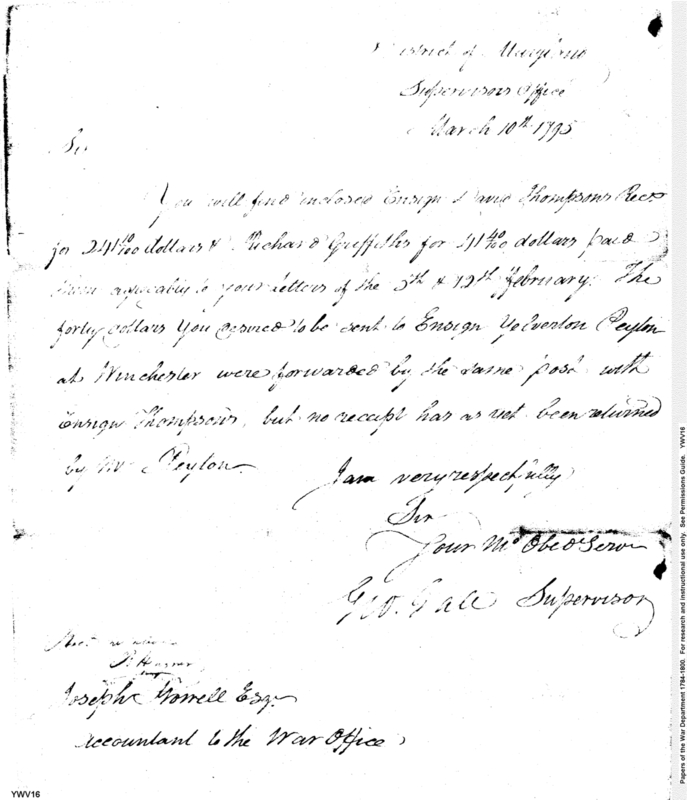 District of Maryland
Supervisors Office
March 10th 1795
Sir
You will find enclosed Ensign David Thompsons Rect
for 24 40/100 dollars & Richard Griffiths for 41 40/100 dollars paid
them agreeably to your Letters of the 5th & 12th February. The
forty dollars you desired to be sent to Ensign Yelverton Peyton
at Winchester were forwarded by the same post with
Ensign Thompson's, but no receipt has as yet been returned
by Mr Peyton.
I am very respectfully
Sir
Your Mo Obed Serv
Geo. Gale Supervisor
P. Hagner
Joseph Howell Esqr
Accountant to the War Office
YWV16
Papers of the War Department 1784-1800. For research and instructional use only. See Permissions Guide. YWV16